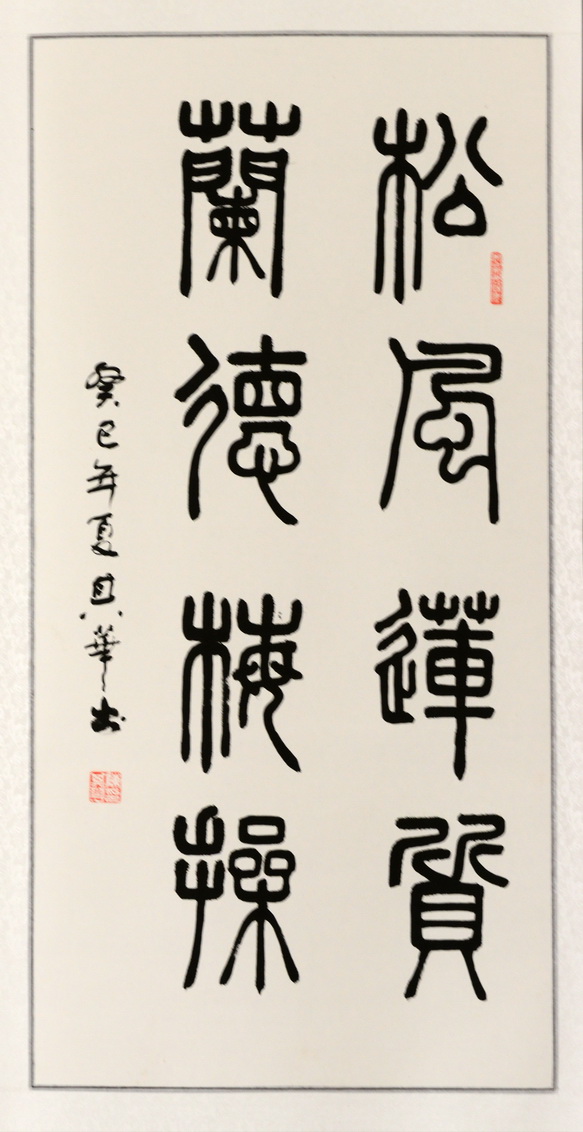 松風蓮質
蘭德梅操
癸巳年夏其華書